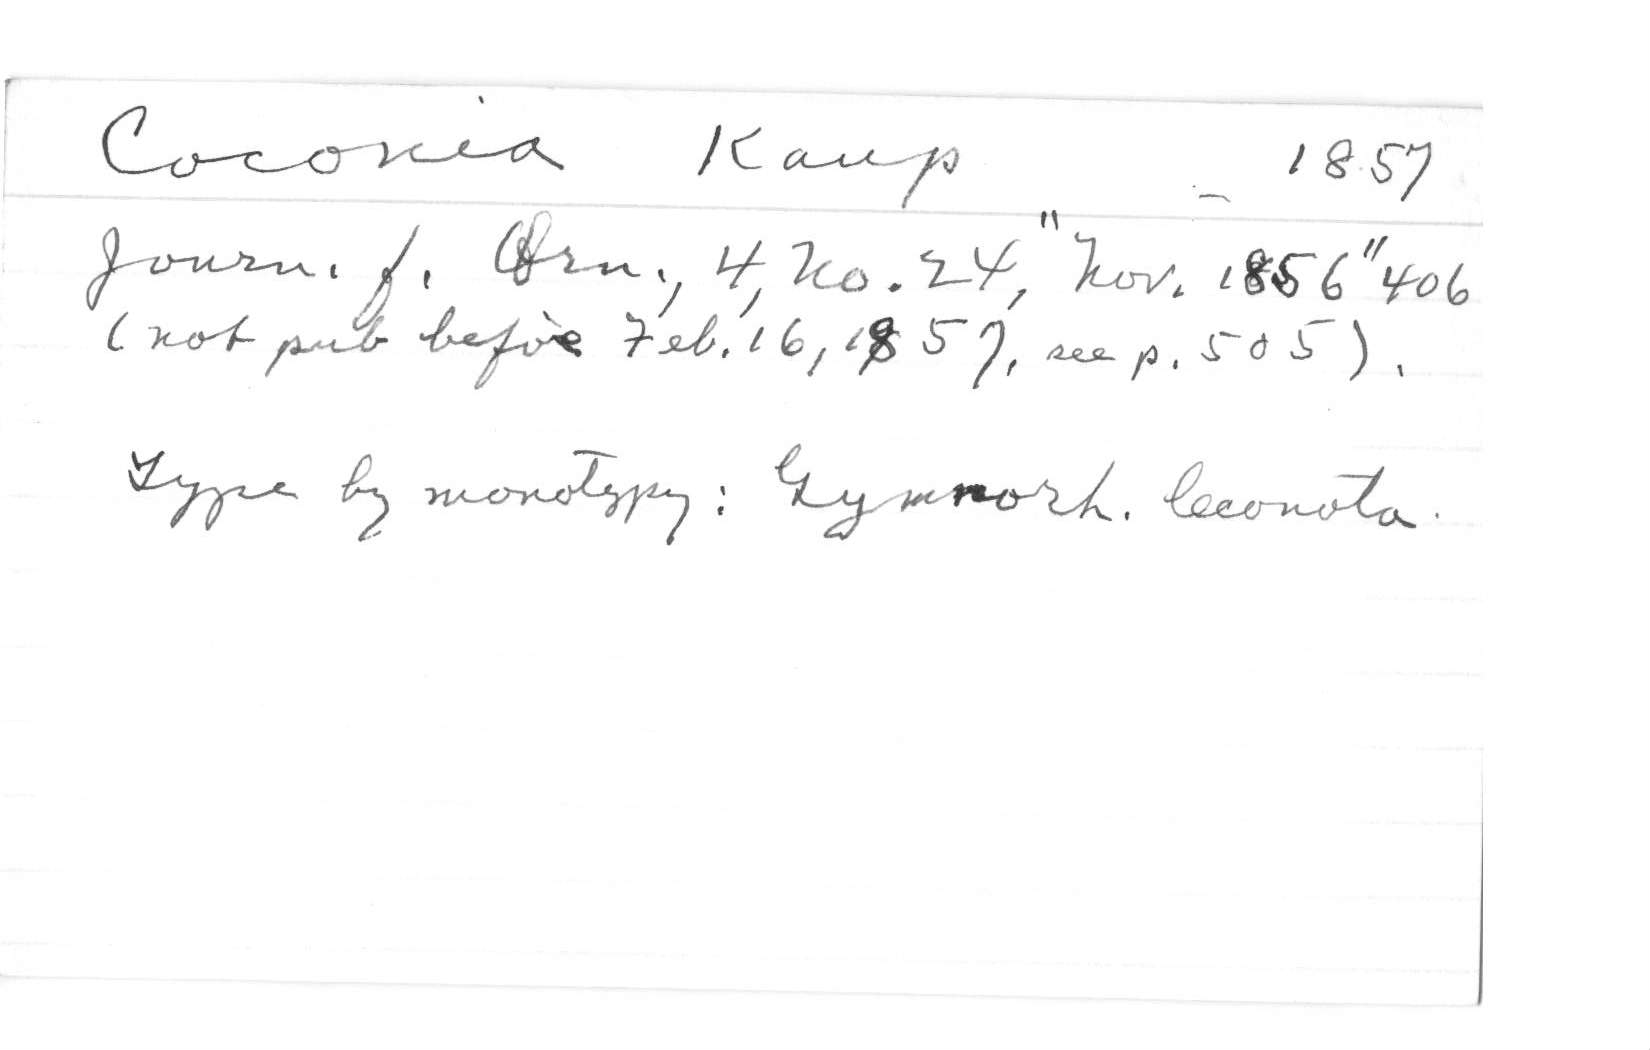 Coconia Kaup _ 1857
Journ. f. Orn., 4, No. 24, "Nov. 1856" 406
(not pub before Feb. 16, 1857, see p. 505).
Type by monotypy: Gymnorh. leconota.